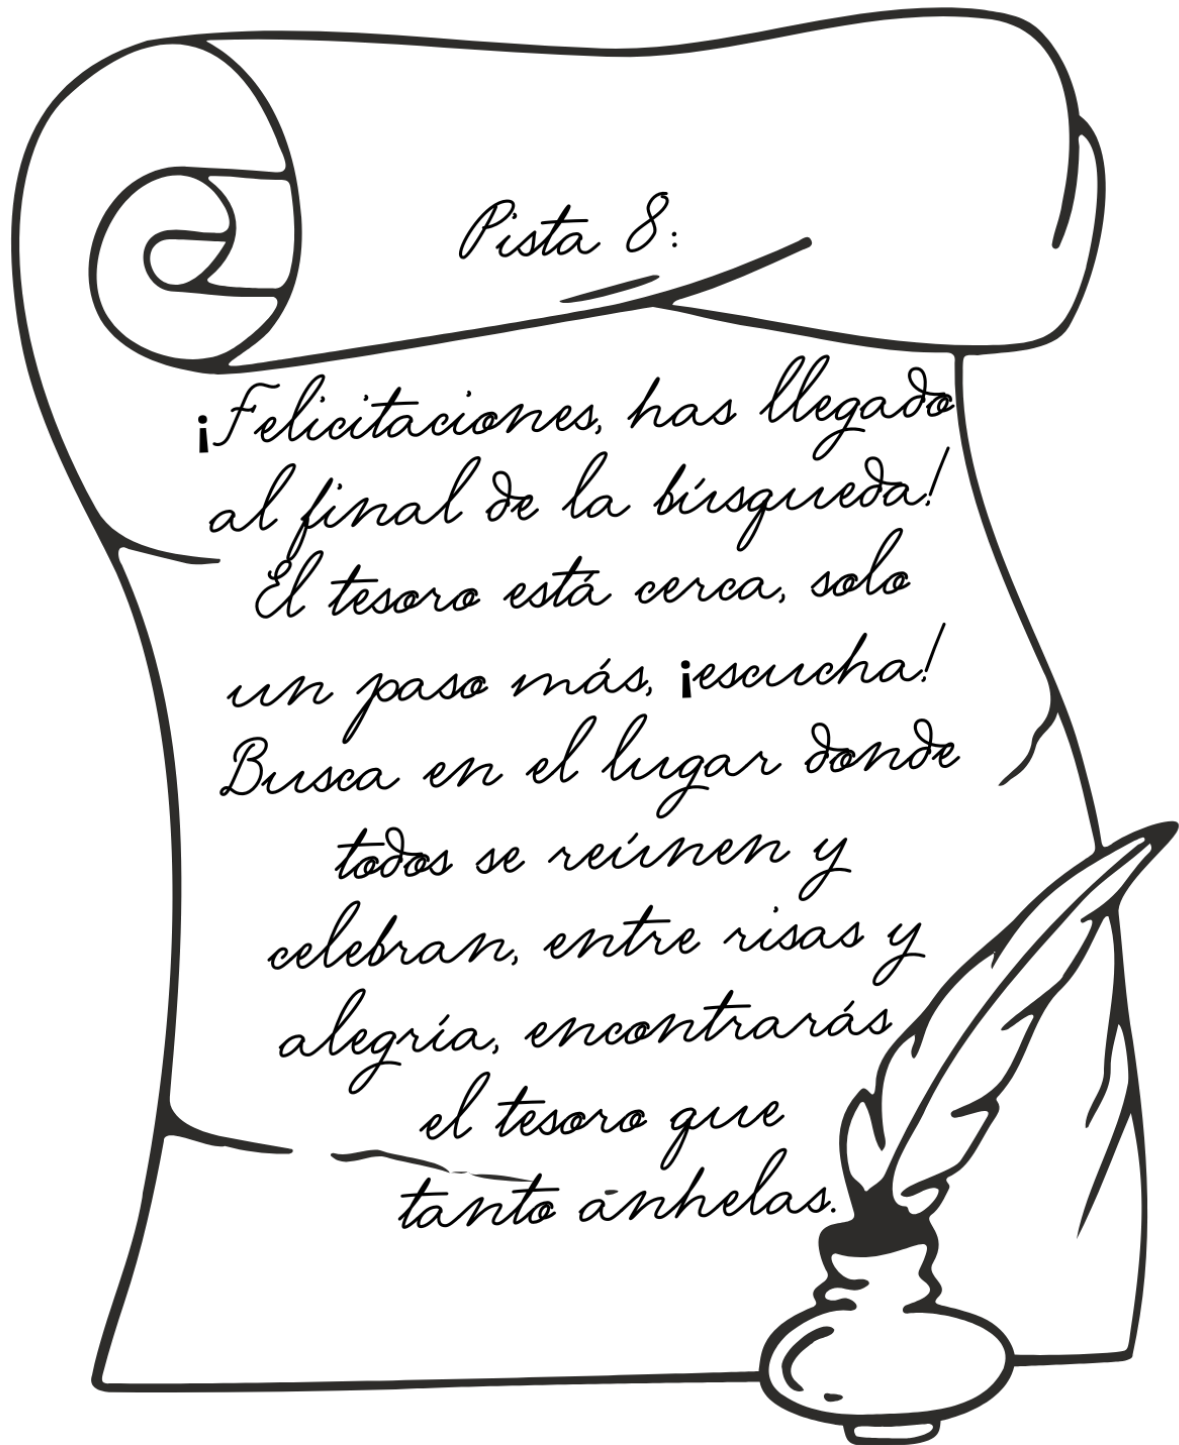 Pista 8:
¡Felicitaciones, has llegado
al final de la búsqueda!
El tesoro está cerca, solo
un paso más, ¡escucha!
Busca en el lugar donde
todos se reúnen y
celebran, entre risas y
alegría, encontrarás
el tesoro que
tanto anhelas.